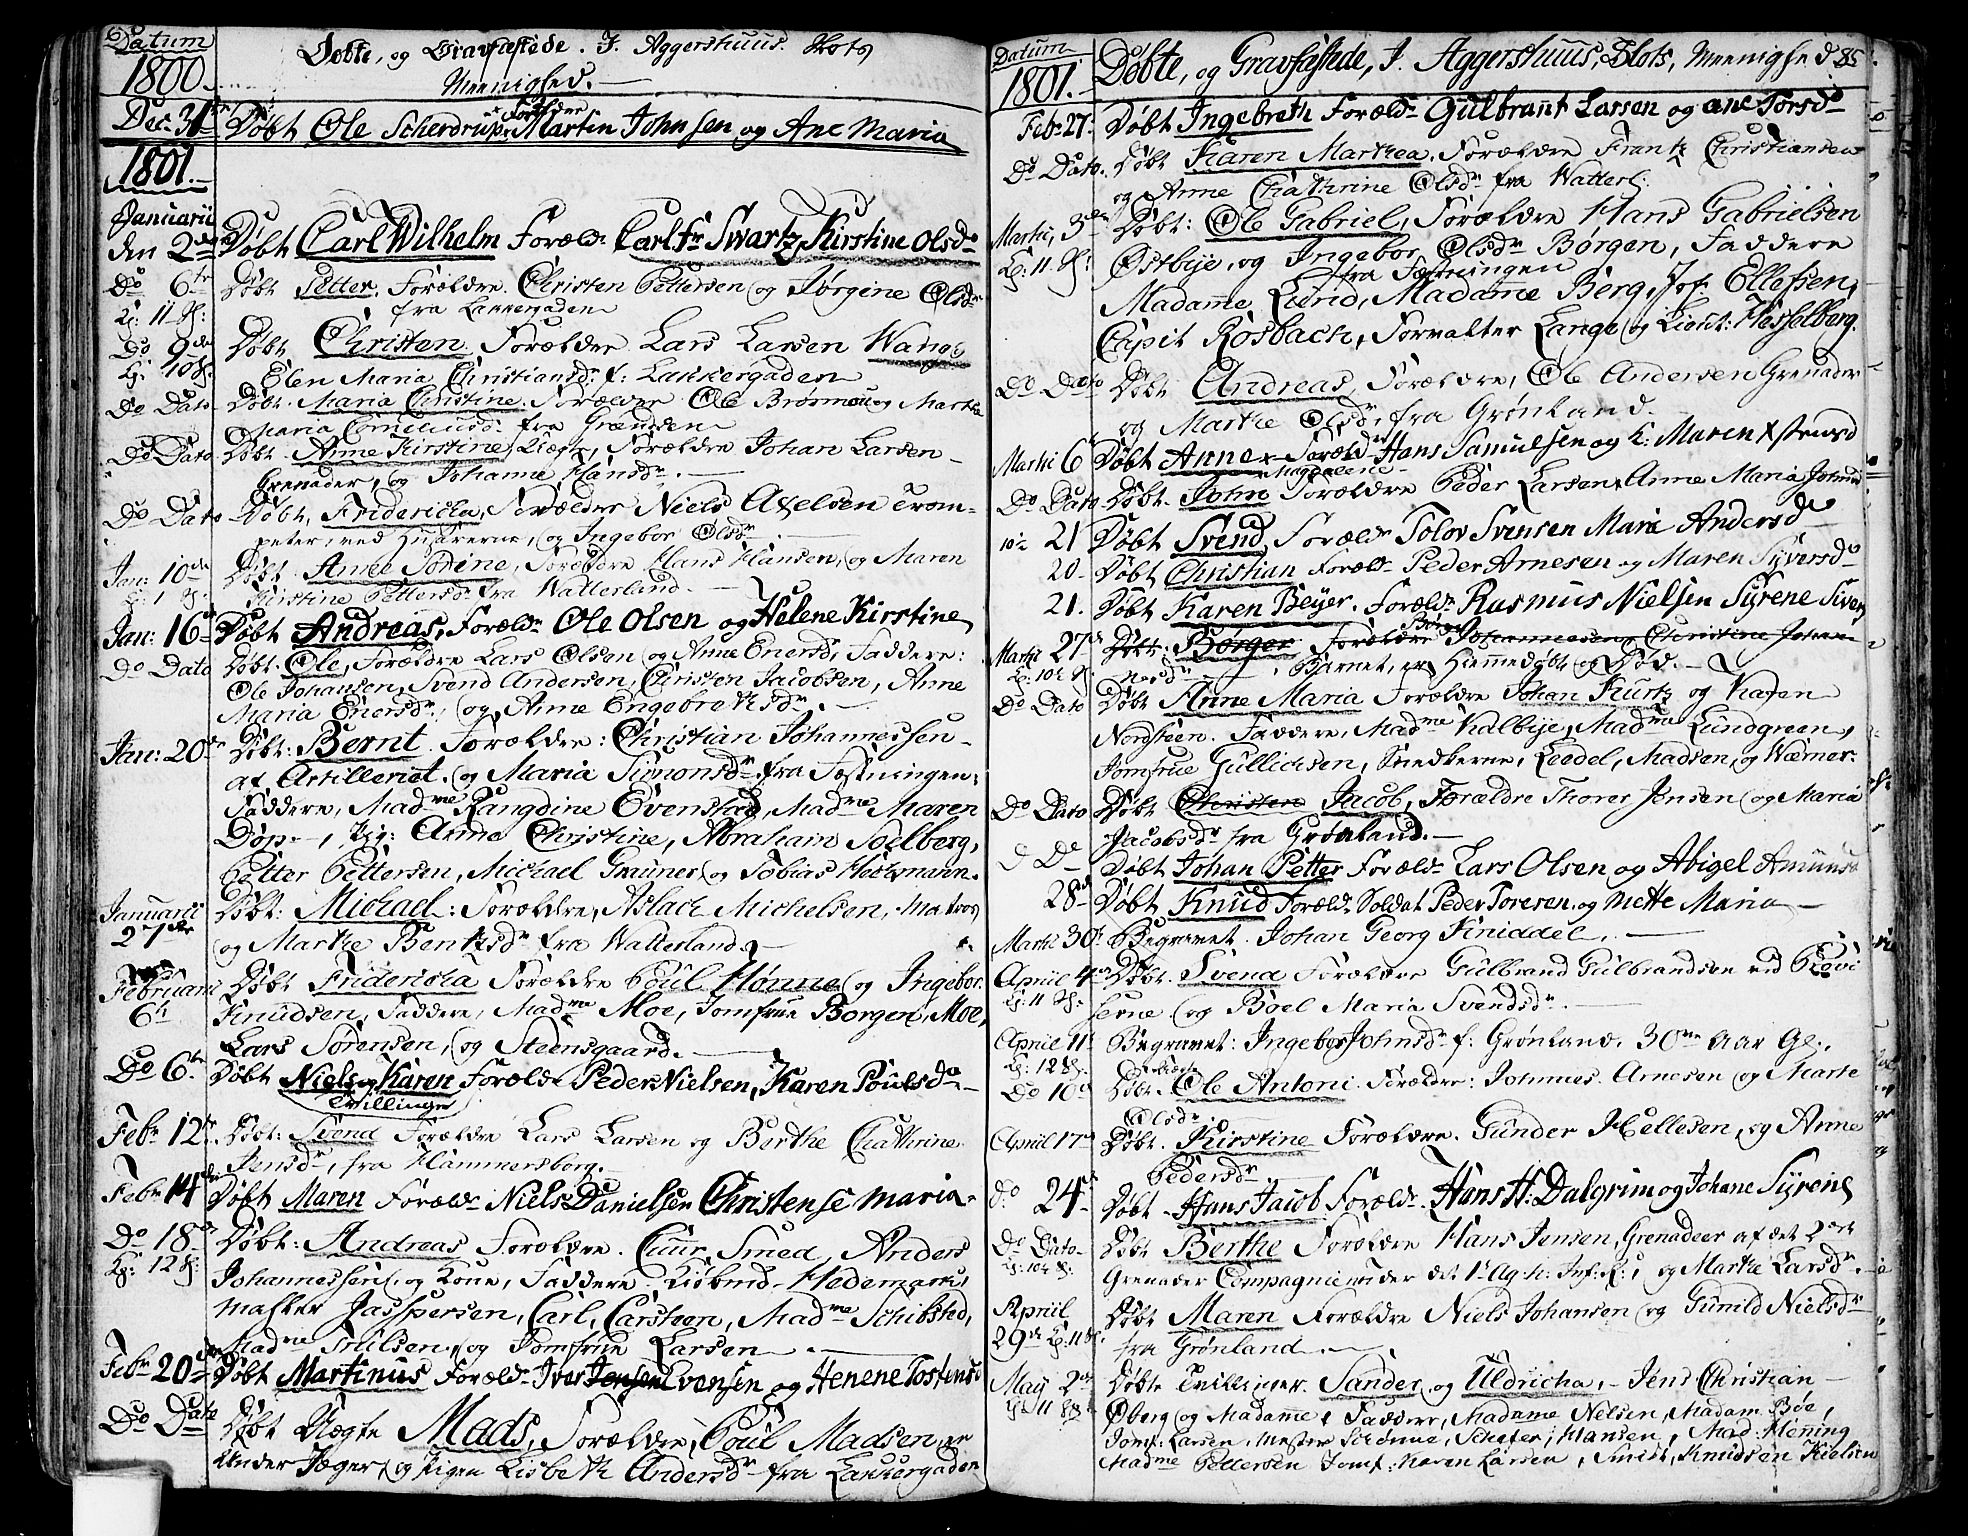 Datum
1800.
Döbte, og Gravfæstede. I. Aggershuus Slots
Meenighed.
Dec. 31te Döbt Ole Scherdrup Foræld Martin Johnsen og Ane Maria
1801.
Januarii
den 2den Döbt Carl Wilhelm Foræld. Carl Fr Swartz, Kirstine Olsd
Do 6te Döbt Petter. Forældre. Christen Pettersen og Jörgine Olsdr
Kl: 11 S: fra Lakkergaden
Do 9de Döbt Christen. Forældre Lars Larsen Wang og
Elen Maria Christiansd: f: Lakkergaden
Do Dato Döbt. Maria Christine. Forældre Ole Brosmou og Marthe
Maria Corneliusd. fra Grændsen
Do Dato Döbt. Anne Kirstine, Uægte, Forældre Johan Larsen
Grenader, og Johanne Hansdr.
Do Dato Döbt, Fridericha, Forældre Niels Axelsen Trom=
peter, ved Husarerne, og Ingebor Olsdr.
Jan: 10de Döbt. Anne Sorine, Forældre Hans Hansen, og Maren
Kirstine Pettersdr fra Watterland.
Jan: 16de Döbt Andreas, Foræld. Ole Olsen og Helene Kirstine
Do Dato Döbt. Ole, Forældre Lars Olsen og Anne Enersd, Faddere:
Ole Johansen, Svend Andersen, Christen Jacobsen, Anne
Maria Enersdr, og Anne Engebrethsdr.
Jan: 20de Döbt: Bernt. Forældre: Christian Johannessen
af Artilleriet. og Maria Simonsdr. fra Fæstningen.
Faddere, Madme Rangdine Evensted, Madme Maren
Döp, Pig: Anne Christine, Abraham Solberg,
Petter Pettersen, Michael Grauner og Tobias Holtzmann.
Januarii Döbt: Michael: Forældre, Aslach Michelsen, Matros
27de og Marthe Bentsdr fra Watterland.
Februarii Döbt Fridericha Forældre Poul Hönne og Ingebor.
6te Knudsen, Faddere, Madme Moe, Jomfrue Borgen, Moe,
Lars Sörensen, og Steensgaard.
Do 6te Döbt Niels og Karen Foræld. Peder Nielsen, Karen Poulsd
Tvillinge
Febr 12te Döbt: Svend Forældre Lars Larsen og Berthe Chathrine
Jensdr, fra Hammersborg.
Febr 14de Döbt Maren Foræld. Niels Danielsen Christense Maria
Do 18de Döbt: Andreas Forældre. Cuur Smed, Anders
Kl: 12 S: Johannessen, og Kone, Faddere. Kiöbmd. Hedemark,
Master Jasspersen, Carl, Carsteen, Madme Schibsted,
Madme Truelsen, og Jomfrue Larsen
Febr 20de Döbt Martinus Foræld. Iver Jensen Evensen og Henene Tostensd
Do Dato Döbt Uægte Mads, Forældre, Poul Madsen, en
Under Jæger, og Pigen Lisbeth Andersdr. fra Lakkergaden
Datum
1801.
Döbte, og Gravfæstede, I. Aggershuus, Slots, Meenighed 85
Feb. 27. Döbt Ingebreth Foræld. Gulbrant Larsen og ane Torsd
Do Dato. Döbt Karen Marthea, Forældre Frantz Christiansen
og Anne Chathrine Olsdr fra Watterl:
Martii, 3de Döbt: Ole Gabriel, Forældre Hans Gabrielsen
Kl: 11 S: Östbije, og Ingebor Olsdr Börgen, Faddere
fra Fæstningen
Madamme Lund, Madamme Berg, Jof. Ellefsen,
Capit Rosbach, Forvalter Lange, og Lieut: Hesselberg.
Do Dato Döbt Andreas, Forældre, Ole Andersen Grenader
og Marthe Olsdr, fra Grönland.
Martii 6 Döbt Anne Magdalene Foræld Hans Samuelsen og K: Maren Xstensd
Do Dato Döbt. John Forældre Peder Larsen, Anne Maria Johnsd
21 Döbt Svend, Foræld. Tolov Svensen Marie Andersd
20- Döbt Christian Foræld. Peder Arnesen og Maren Syversd
21. Döbt Karen Beyer. Foræld. Rasmus Nielsen Syrene Sivers
Martii 27de Döbt: Börger Forældre Johannesen, Christine Johan
nesdr. Barnet, er Hiemmedöbt og Död.
Do Dato Döbt Anne Maria Forældre Johan Kurtz og Karen
Nordsteen. Faddere, Madme Kalbije, Madme Lundgreen,
Jomfrue Gullichsen, Snedkerne, Leedel, Madsen, og Wæmer.
Do Dato Döbt Christen Jacob, Forældre Thorer Jensen og Maria
Jacobsdr fra Grönland.
Do Döbt Johan Petter Foræld. Lars Olsen og Abigel Amunds
28de Döbt Knud Foræld. Soldat Peder Toresen og Mette Maria
Martii 30te Begravet. Johan Georg Finiddel.
Apriil 4de Döbt. Svend Forældre Gulbrand Gulbrandsen ved Provi
Kl: 11 S: serne og Boel Maria Svendsdr.
Apriil 11 Begravet: Ingebor Johnsdr f: Grönland. 30 Aar Gl.
Kl: 12 S:
Do 10de Döbt. Ole Antoni. Forældre: Johnnes Arnesen og Marte
Olsdr.
Apriil 17de Döbt. Kirstine Forældre. Gunder Hellesen, og Anne
Pedersdr
do 24de Döbt. Hans Jacob Foræld. Hans H: Dalgrim og Johane Syrene
Do Dato Döbt Berthe Forældre Hans Jensen, Grenadeer af det 2det
Grenader Compagnie under det 1te Ag:h: Inf:R:, og Marthe Larsdr.
Apriil Döbt Maren Forældre Niels Johansen og Gunild Nielsdr
29de Kl: 11 S: fra Grönland
Maij 2den Döbte Tvillinger. Sander, og Uldricha,. Jens Christian
Kl: 11 Öberg og Madamme, Faddere, Madamme Nelsen, Madam Böe,
Jomf: Larsen, Mester Schönne, Schefer, Hansen, Mad: Henning
Madme Pettersen Jomf: Maren Larsen, Smidt, Knudsen Kielsen